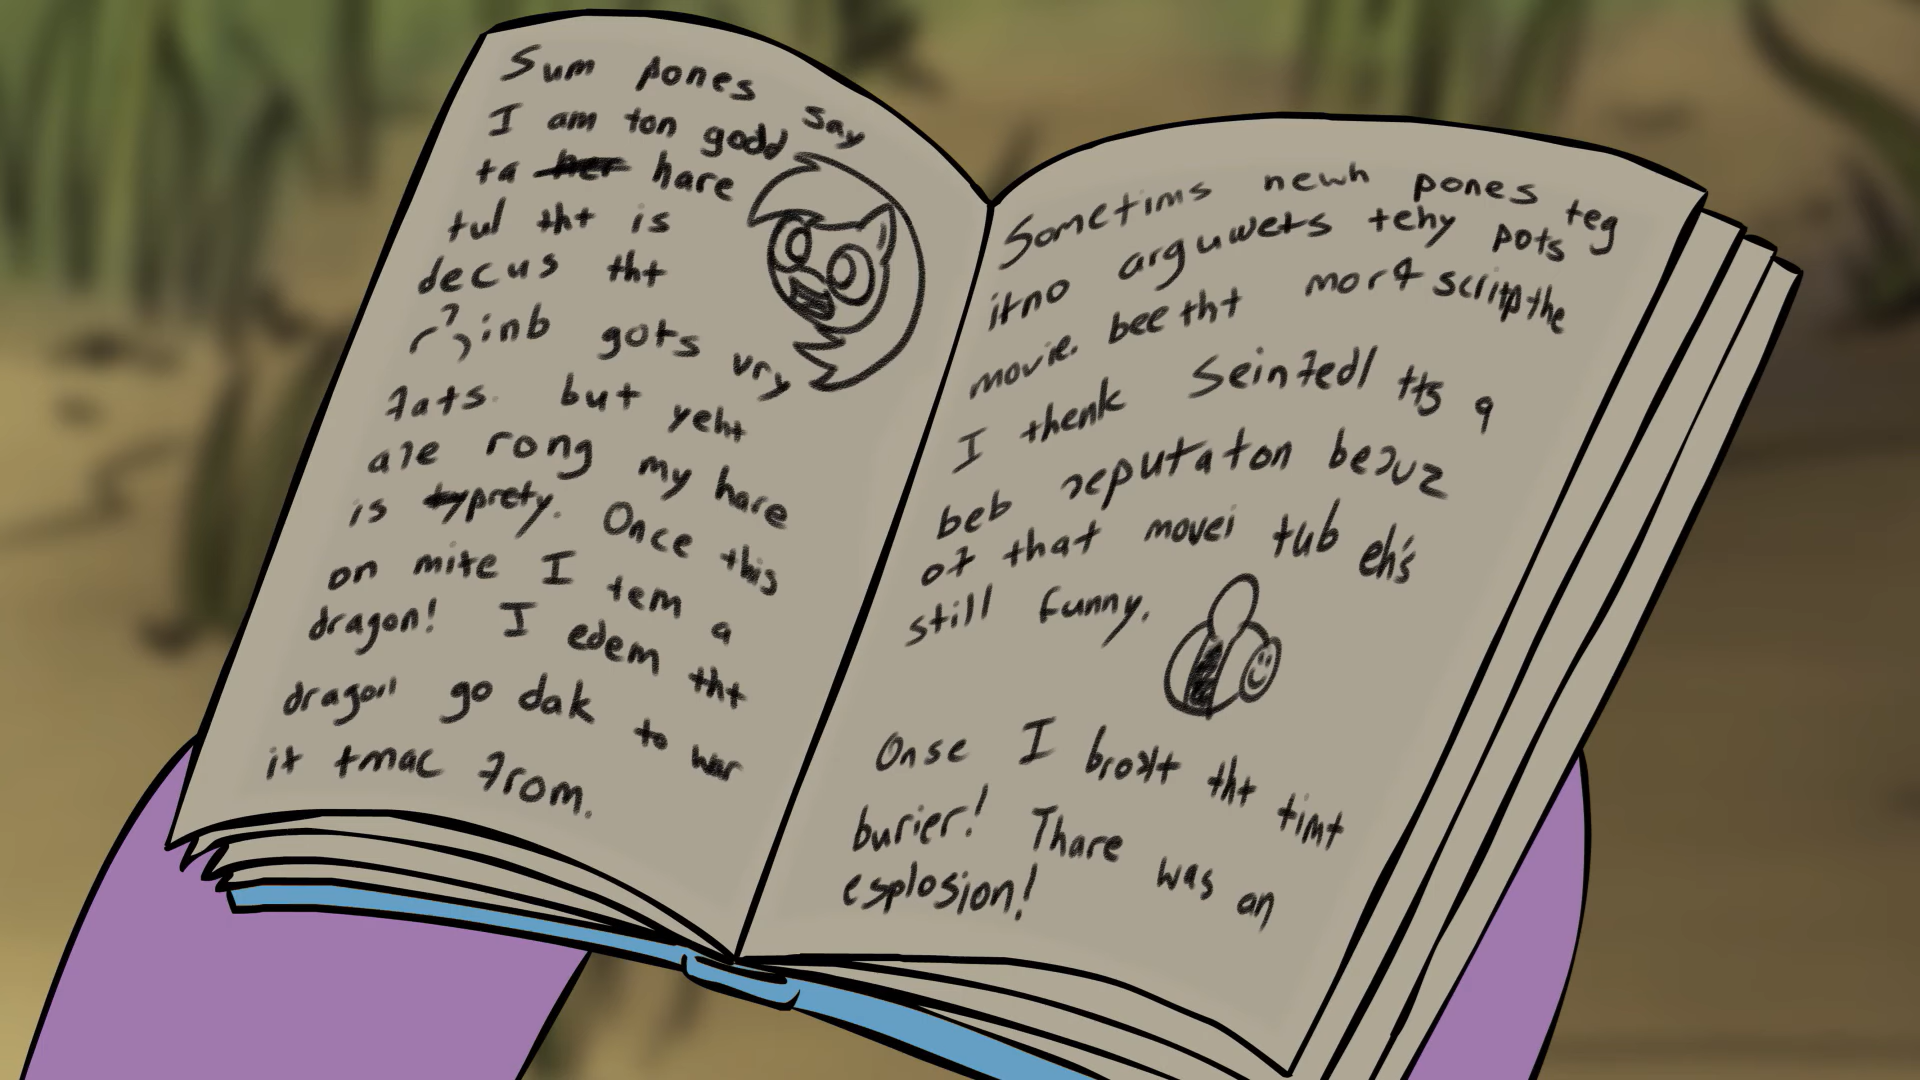 Sum pones say
I am ton godd
ta her hare
tul tht is
decus tht
inb gots vry
fats. but yeht
are rong my hare
is ty prety. Once this
on mite I tem a
dragon! I edem tht
dragon go dak to war
it tmac from.
Sometims newh pones teg
itno arguwets tehy pots
movie. bee tht mor4 scriipthe
I thenk Seinfedl tts a
beb reputaton becuz
of that movei tub eh's
still funny.
Onse I brokt tht timt
burier! Thare was an
esplosion!